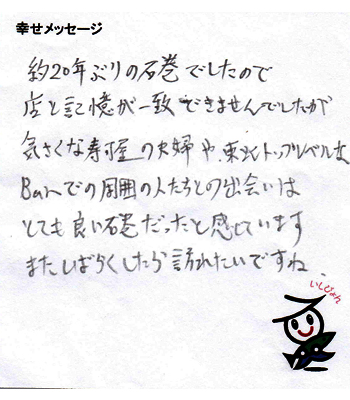 幸せメッセージ
約20年ぶりの石巻でしたので
店と記憶が一致できませんでしたが
気さくな寿司屋の夫婦や、東北トップレベルな
Barでの周囲の人たちとの出会いは
とても良い石巻だったと感じています
またしばらくしたら訪れたいですね。
いしぴょん